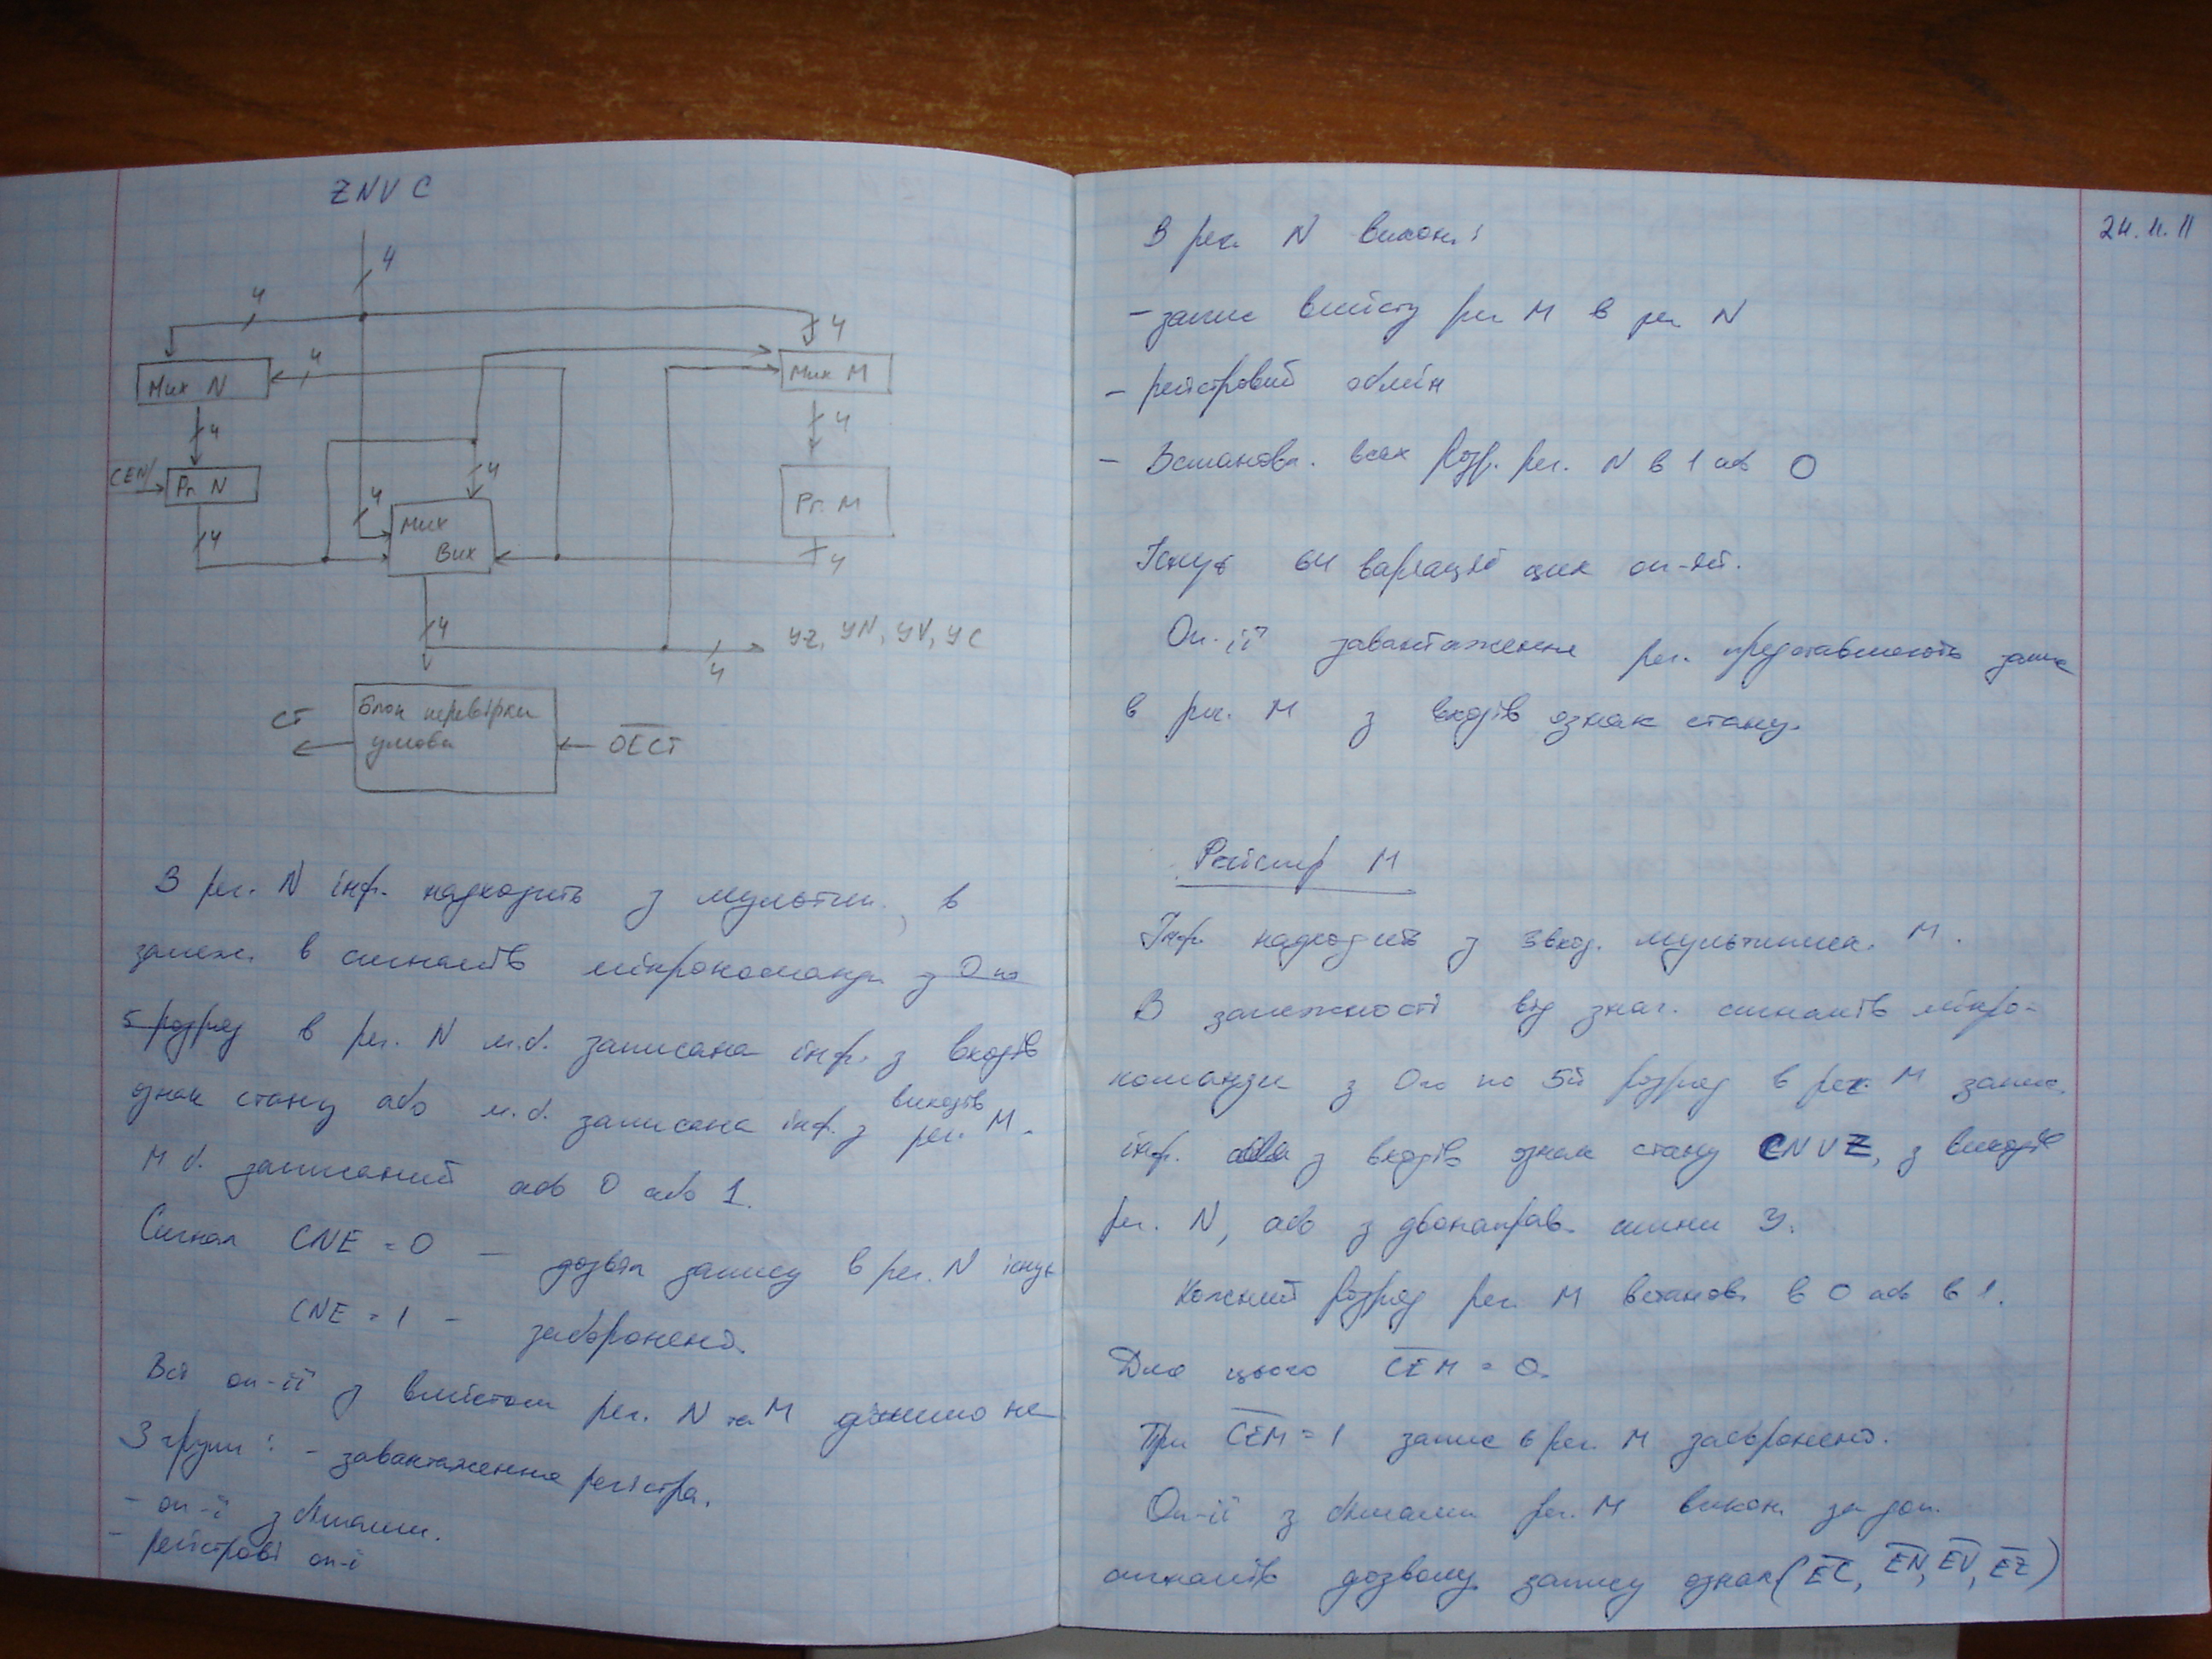 ZNVC
4
4
4
4
Мих N
Мих М
4
4
4
CEN
Рг N
4
Рг. М
Мих
Вих
4
4
4
4
УZ, УN, УV, УC
Блок перевірки
умови
СТ
OECT
В рег. N інф. надходить з мультип. в
залеж. в сигналів мікрокоманди з 0 по
5 розряд в рег. N м.б. записана інф. з входів
ознак стану або м.б. записана інф. з виходів рег. М.
М б. записаний або 0 або 1.
Сигнал CNE = 0 — дозвіл запису в рег. N існує
CNE = 1 – заборонено.
Всі оп-ії з вмістом рег. N та М ділимо на
3 групи: - завантаження регістра.
- оп-ї з бітами.
- регістрові оп-ї
24.11.11
В рег. N викон:
- запис вмісту рег М в рег N
- регістровий обмін
- Встановл. всех розр. рег. N в 1 або 0
Існує 64 варіації цих оп-ій.
Оп-ії завантаження рег. представляють запис
в рег. М з входів ознак стану.
Регістр М
Інф. надходить з 3 вход. мультиплек. М.
В залежності від знач. сигналів мікро-
команди з 0го по 5й розряд в рег. М запис.
інф. з входів ознак стану CNVZ, з виходів
рег. N, або з двонаправ. шини У.
Кожний розряд рег. М встанов. в 0 або в 1.
Для цього CEM = 0.
При CEM = 1 запис в рег. М заборонено.
Оп-ії з бітами рег. М викон. за доп.
сигналів дозволу запису ознак (EC, EN, EV, EZ)